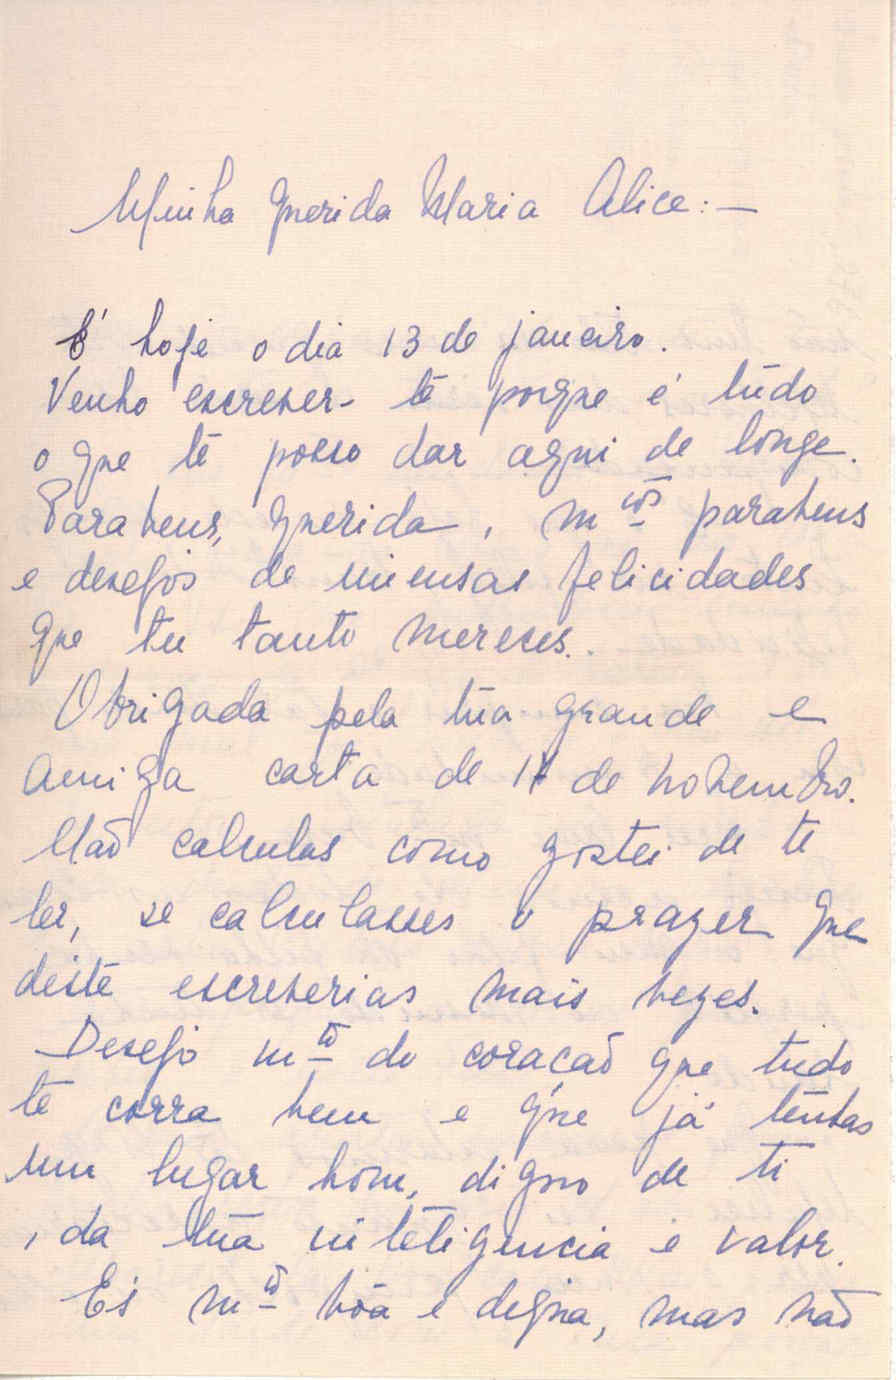 Minha querida Maria Alice: —
É hoje o dia 13 de janeiro.
Venho escrever-te porque é tudo
o que te posso dar aqui de longe.
Parabens, querida, mtos parabens
e desejos de imensas felicidades
que tu tanto mereces.
Obrigada pela tua grande e
amiga carta de de novembro.
Não calculas como gostei de te
ler, se calculasses o prazer que
deste escreverias mais vezes.
Desejo mto do coração que tudo
te corra bem e que já tenhas
um lugar bom, digno de ti
, da tua inteligencia e valor.
És mto bôa e digna, mas não